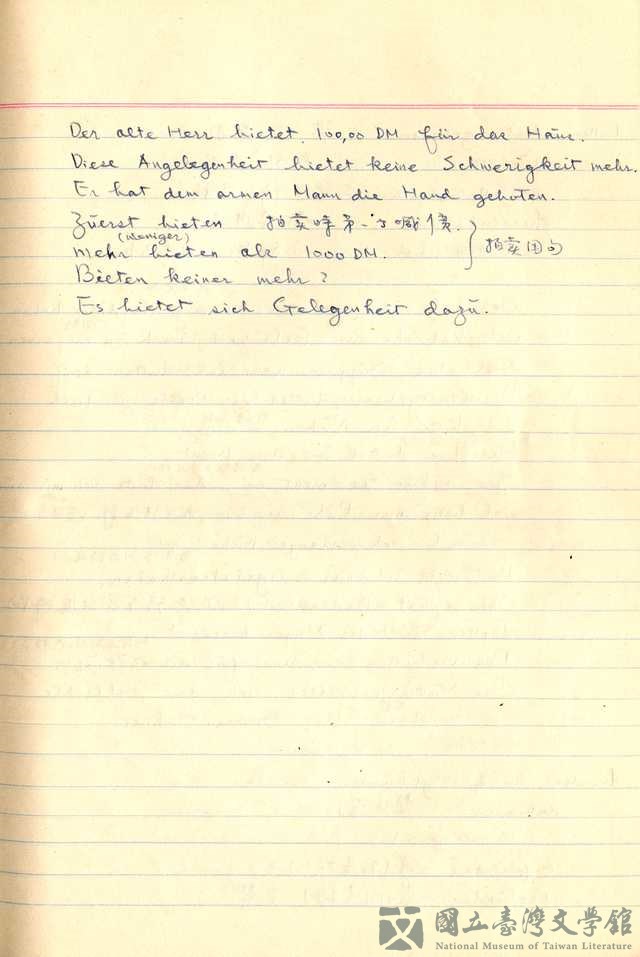 Der alte Herr bietet 100,00 DM für das Haus.
Diese Angelegenheit bietet keine Schwerigkeit mehr.
Er hat dem armen Mann die Hand geboten.
Zuerst bieten 拍卖時第一个喊價.
(weniger)
mehr bieten als 1000 DM.
拍卖用句
Bieten keiner mehr?
Es bietet sich Gelegenheit dazu.
國立臺灣文學館
National Museum of Taiwan Literature